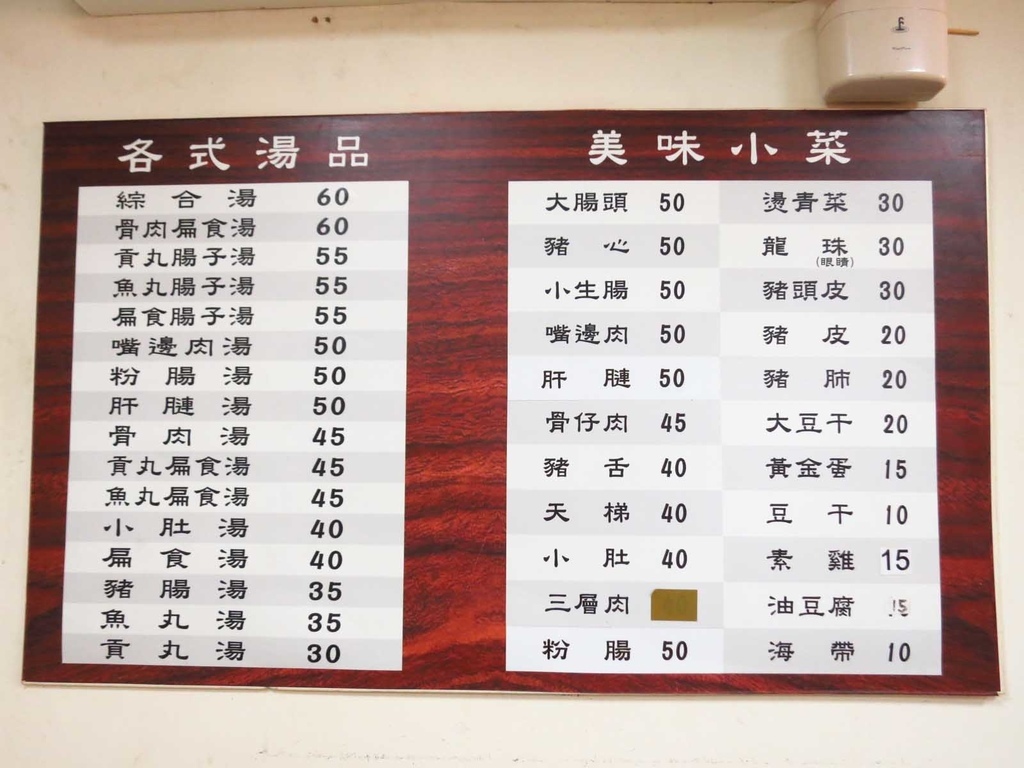 各式湯品
綜合湯 60
骨肉扁食湯 60
貢丸腸子湯 55
魚丸腸子湯 55
扁食腸子湯 55
嘴邊肉湯 50
粉腸湯 50
肝腱湯 50
骨肉湯 45
貢丸扁食湯 45
魚丸扁食湯 45
小肚湯 40
扁食湯 40
豬腸湯 35
魚丸湯 35
貢丸湯 30
美味小菜
大腸頭 50
豬心 50
小生腸 50
嘴邊肉 50
肝腱 50
骨仔肉 45
豬舌 40
天梯 40
小肚 40
三層肉
粉腸 50
燙青菜 30
龍珠 30
(眼睛)
豬頭皮 30
豬皮 20
豬肺 20
大豆干 20
黃金蛋 15
豆干 10
素雞 15
油豆腐 15
海帶 10